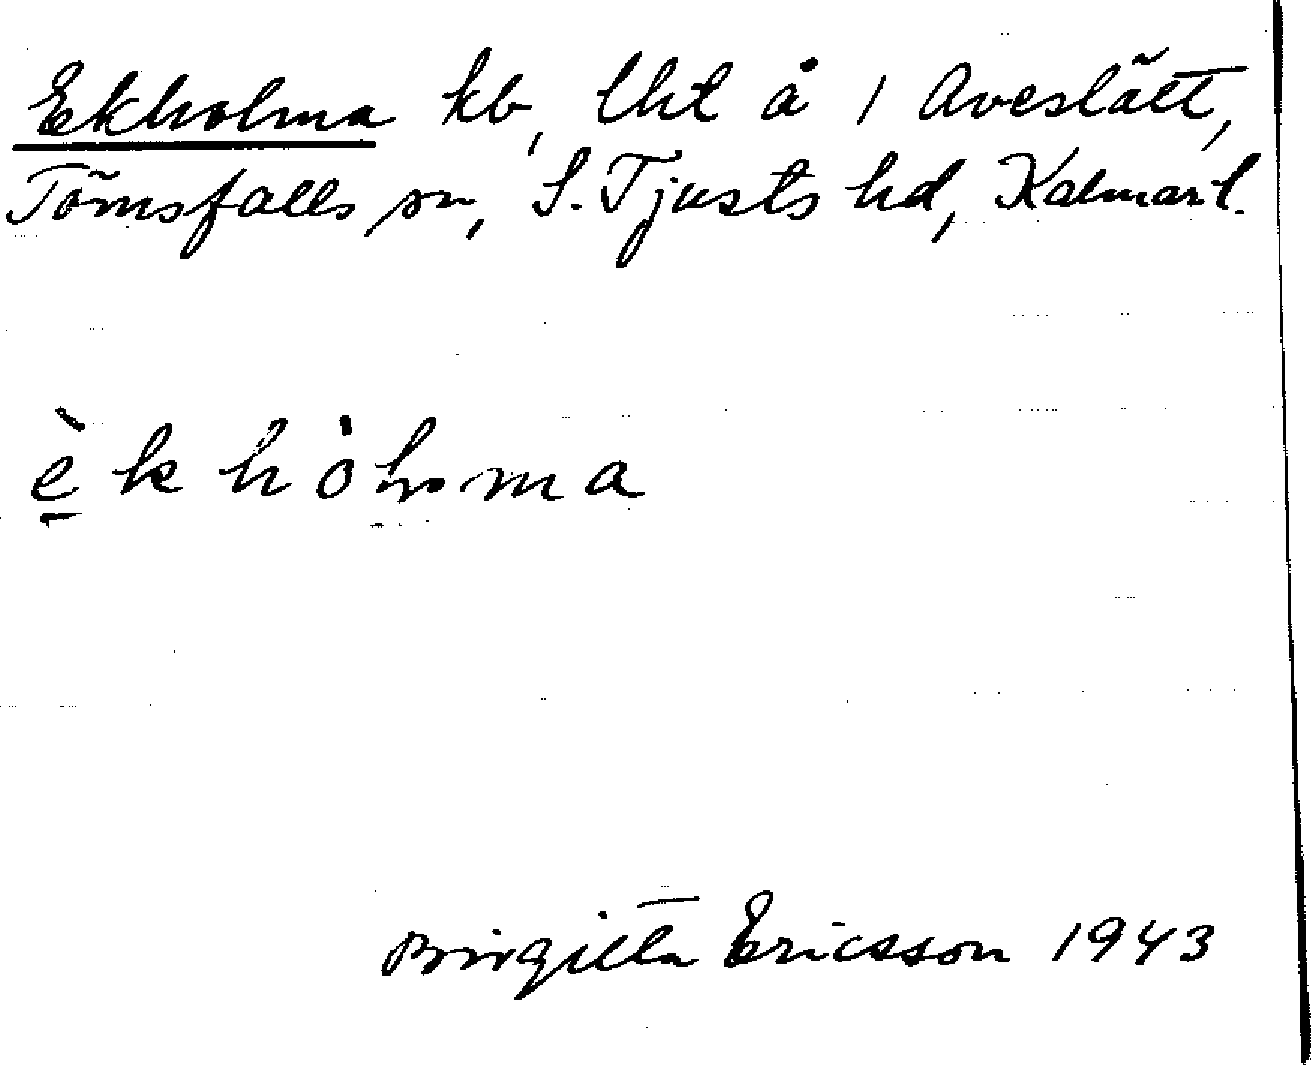 Ekholma kb, lht å 1 Aveslätt,
Törnsfalls sn, S. Tjusts hd, Kalmar l.
èkhòlma
Birgitta Ericsson 1943